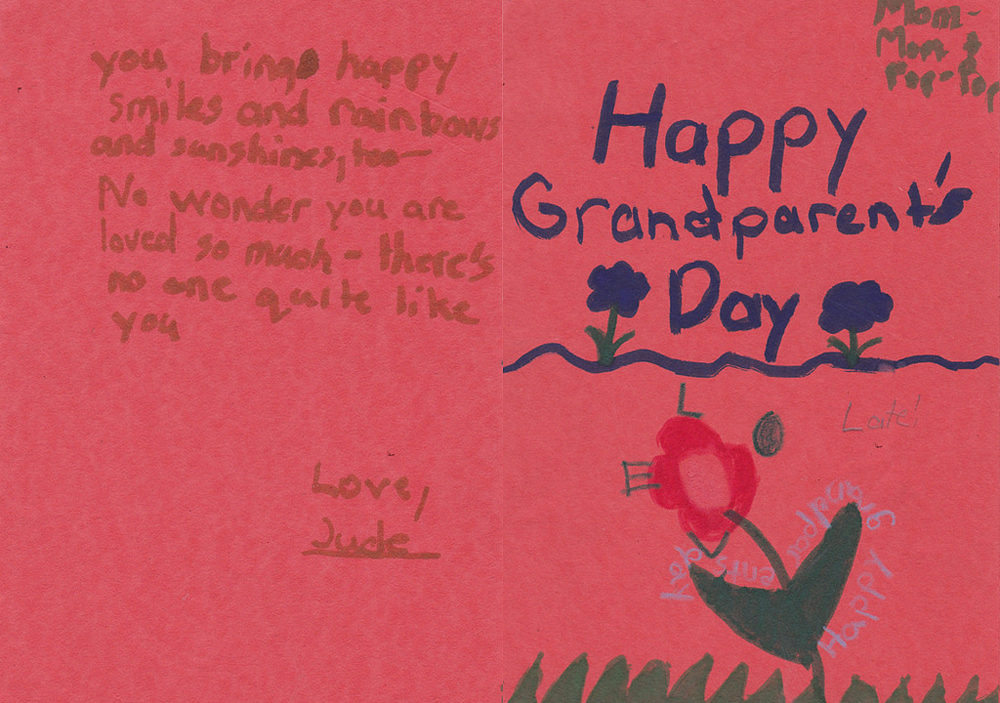 you brings happy
smiles and rainbows
and sunshines, too—
No wonder you are
loved so much – there's
no one quite like
you
Love,
Jude
Mom-
Mom &
Pop-Pop
Happy
Grandparent's
Day
Late!
L
O
E
V
Happy grandparents day